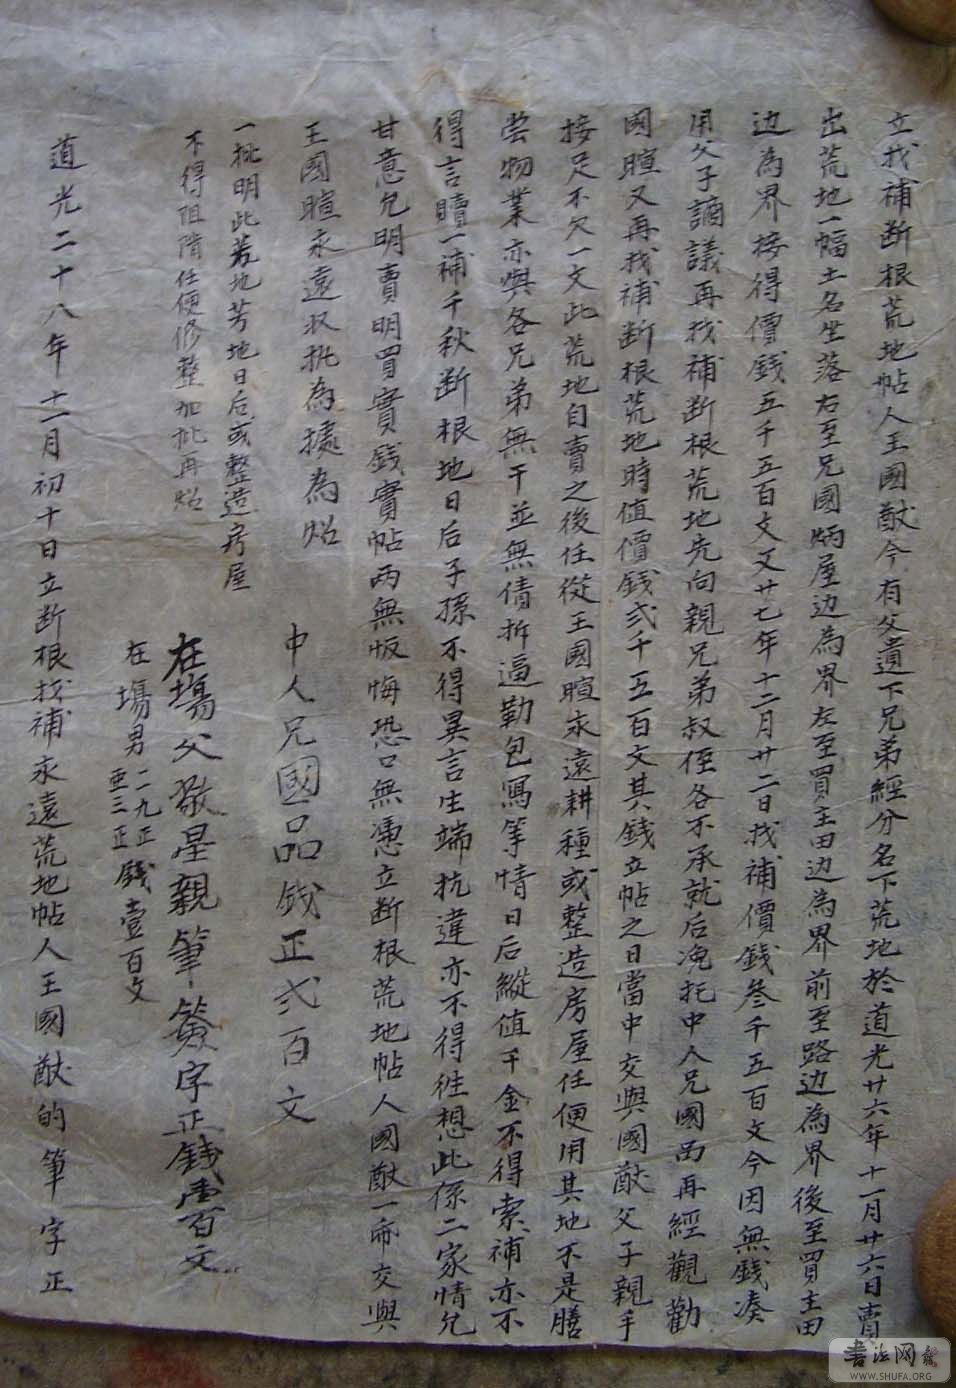 立找補断根荒地帖人王國猷今有父遺下兄弟經分名下荒地於道光廿六年十一月廿六日賣
出荒地一幅土名坐落右至兄國炳屋边為界左至買主田边為界前至路边為界後至買主田
边為界接得價錢五千五百文又廿七年十二月廿二日找補價錢叄千五百文今因無錢凑
用父子謫議再找補断根荒地先向親兄弟叔侄各不承就后浼托中人兄國品再經觀勸
國暄又再找補断根荒地時值價錢弍千五百文其錢立帖之日當中交與國猷父子親手
接足不欠一文此荒地自賣之後任從王國暄永遠耕種或整造房屋任便用其地不是膳
尝物業亦與各兄弟無干並無債折逼勒包寫等情日后縱值千金不得索補亦不
得言贖一補千秋断根地日后子孫不得異言生端抗違亦不得徃想此係二家情允
甘意允明賣明買實錢實帖両無恢悔恐口無憑立断根荒地帖人國猷一帋交與
王國暄永遠収执為據為炤
一批明此芳地芳地日后或整造房屋
不得阻隋任便修整加批再炤
中人兄國品錢正弍百文
在塲父敬星親筆簽字正錢壹百文
在塲男二九正亜三正錢壹百文
道光二十八年十二月初十日立断根找補永遠荒地帖人王國猷的筆字正
書法网
WWW.SHUFA.ORG